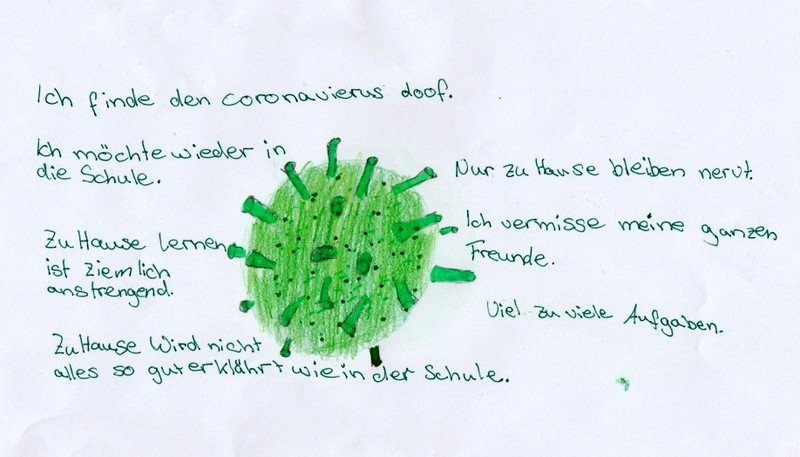 Ich finde den coronavierus doof.
Ich möchte wieder in
die Schule.
Zu Hause lernen
ist ziemlich
anstrengend.
Zu Hause wird nicht
alles so gut erklährt wie in der Schule.
Nur zu Hause bleiben nervt.
Ich vermisse meine ganzen
Freunde.
Viel zu viele Aufgaben.